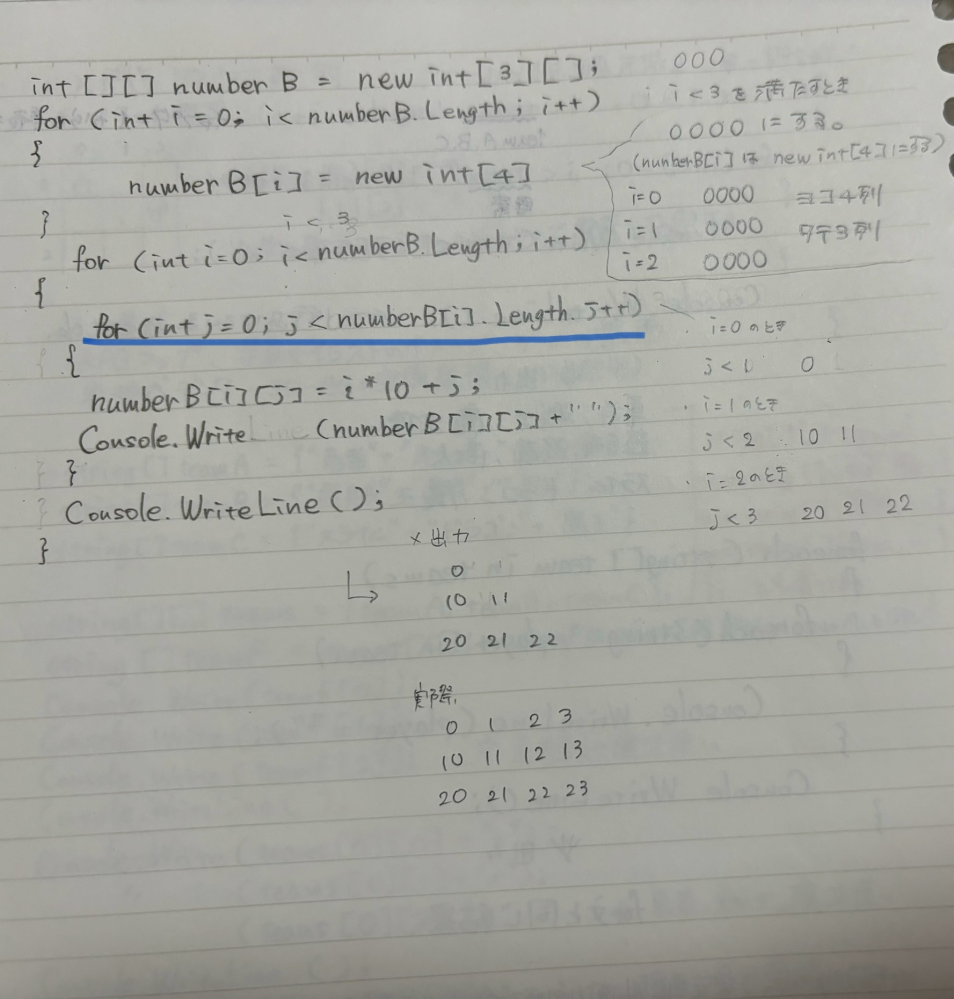 int [][] number B = new int[3][];
for (int i = 0; i < number B. Length; i++)
{
number B[i] = new int[4]
}
i < 3
for (int i=0; i< number B. Length; i++)
{
for (int j=0; j < numberB[i]. Length. j++)
{
number B[i][j] = i*10 + j;
Console. Write (number B[i][j] + " ");
}
Console. WriteLine ();
}
000
i < 3 を満たすとき
0000 になる。
(numberB[i] は new int[4]になる)
i=0 0000 ヨコ4列
i=1 0000 タテ3列
i=2 0000
・ i=0 のとき
j < 1 0
・ i=1 のとき
j < 2 10 11
・ i=2のとき
j < 3 20 21 22
× 出力
0
10 11
20 21 22
実際
0 1 2 3
10 11 12 13
20 21 22 23